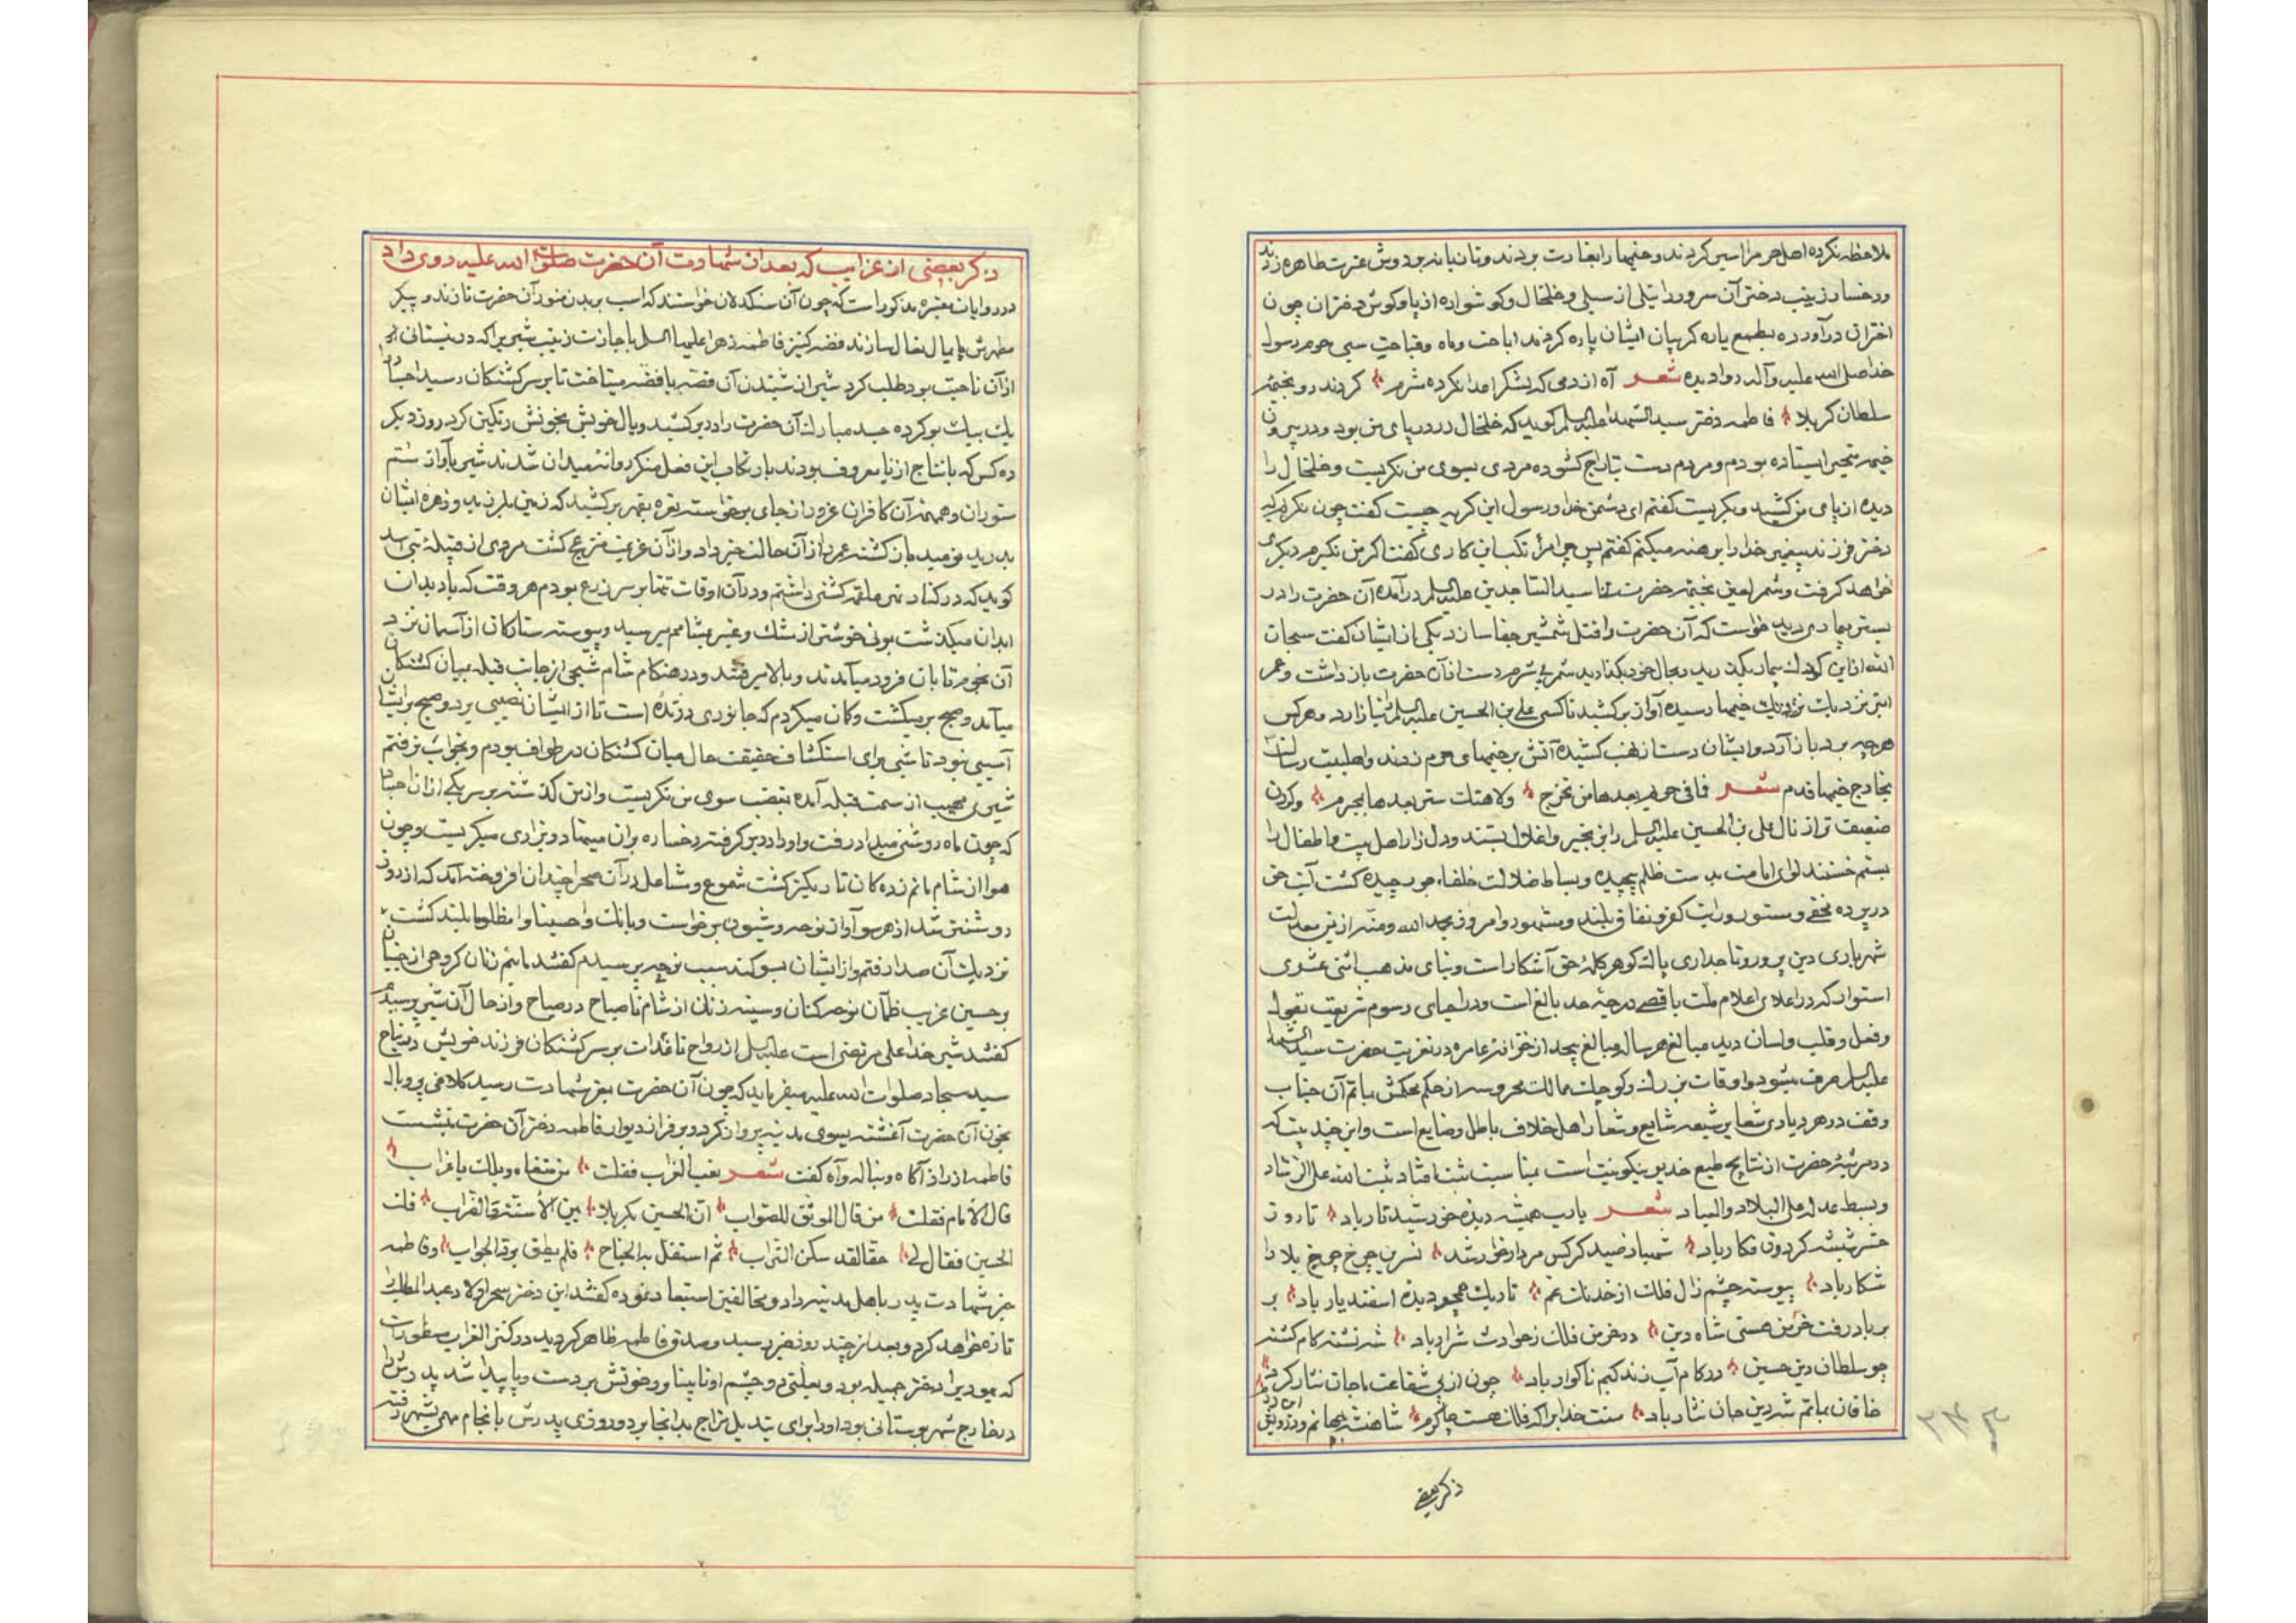 ملاحظه نکرده اهل حرم را اسیر کردند و خیمها را بغارت بردند و تازیانه بر دوش عترت طاهره زدند
و رخسار زینب دختر آن سرور را نیلی از سیلی و خلخال و گوشواره از پا و گوش دختران چون
اختران درآورده بطمع پاره گریبان ایشان پاره کردند اباحت و قباحت سبی حرم رسول
خدا صلی الله علیه و آله روا دیده شعر آه از دمی که لشکر اعدا نکرده شرم کردند رو بخیمه
سلطان کربلا فاطمه دختر سید الشهدا علیه السلم گوید که خلخال زر در پای من بود و در بیرون
خیمه متحیر ایستاده بودم و مردم دست بتاراج گشوده مردی بسوی من نگریست و خلخال را
دیده از پای من کشید و بگریست گفتم ای دشمن خدا و رسول این گریه چیست گفت چون نگریم که
دختر فرزند پیغمبر خدا را برهنه میکنم گفتم پس چرا مرتکب این کاری گفتا گر من نگیرم دیگری
خواهد گرفت و شمر لعین بخیمه حضرت سید الساجدین علیه السلم درآمده آن حضرت را در
بستر بیماری دید خواست که آن حضرت را قتل شمشیر جفا سازد یکی از ایشان گفت سبحان
الله از این کودک بیمار بگذرید و بحال خود بگذارید شمر بی شرم دست از آن حضرت باز داشت و عمر
ابتر نزدیک خیمها رسیده آواز برکشید تا کسی علی بن الحسین علیه السلم را نیازارد و هر کس
هر چه برد باز آرد و ایشان دست از نهب کشیده آتش بر خیمهای حرم زدند و اهلبیت رسالت
بخارج خیمها قدم شعر فافی حره بعدها من تخرج ولا هتک ستر بعدها بمحرم و گردن
ضعیف تر از نال علی بن الحسین علیه السلم را بزنجیر و اغلال بستند و دل زار اهل بیت و اطفال را
بستم خستند لوای امامت بدست ظلم پیچیده و بساط ضلالت خلفاء جور چیده گشت آیت حق
در پرده مخفی و مستور و رایت کفر و نفاق بلند و مشهود و امروز بحمد الله و منه از یمن معدلت
شهریاری دین پرور و تاجداری پاک گوهر کلمه حق آشکار است و بنای مذهب اثنی عشری
استوار که در اعلای اعلام ملت باقصی درجه جد بالغ است و در احیای رسوم شریعت بقول
و فعل و قلب و لسان و ید مبالغ هر سال مبالغ بیحد از خزانه عامره در تعزیت حضرت سید الشهدا
علیه السلم صرف میشود و اوقات بزرگ و کوچک ممالک محروسه از حکم محکمش بماتم آن جناب
وقف در هر دیاری شعایر شیعه شایع و شعار اهل خلاف باطل و ضایع است و این چند بیت که
در مرثیه حضرت از نتایج طبع خدیو نیکو نیت است بمناسبت ثبت افتاد ثبت الله علی الرشاد
و بسط عدله علی البلاد و العباد شعر یا رب همیشه دیده خورشید تار باد تا روز
حشر شیشه گردون فکار باد شهباز صید کرکس مردار خوار شد نسرین چرخ چرخ بلا را
شکار باد پیوسته چشم زال فلک از خدنگ غم تاریک همچو دیده اسفندیار باد بر
بر باد رفت خرمن هستی شاه دین در خرمن فلک ز حوادث شرار باد شد تشنه کام کشته
چو سلطان دین حسین در کام آب زندگیم ناگوار باد چون از پی شفاعت ما جان نثار کرد
خاقان بماتم شه دین جان نثار باد منت خدایرا که فلک هست چاکرم شاهنشه جهانم و در
ذکر بعضی
ذکر بعضی از غرایب که بعد از شهادت آن حضرت صلوات الله علیه روی داد
در روایات معتبره مذکور است که چون آن سنگدلان خواستند که اسب بر بدن منور آن حضرت تازند و پیکر
مطهرش پایمال نعال سازند فضه کنیز فاطمه زهرا علیها السلم باجازت زینب شیریرا که در نیستانی
از آن ناحیت بود طلب کرد شیر از شنیدن آن قصه با فضه میتاخت تا بر سر کشتگان رسید اجساد
یک بیک بو کرده جسد مبارک آن حضرت را در بر کشید و یال خویش بخونش رنگین کرد روز دیگر
ده کس که بانتاج از زنا معروف بودند بارتکاب این فعل منکر روانه میدان شدند شیر بآواز سم
ستوران و همهمه آن کافران عزور از جای برخواسته نعره بقهر برکشید که زمین بلرزید و زهره ایشان
بدرید نومید باز گشته عمر را از آن حالت خبر داد و از آن عزیمت منزعج گشت مردی از قبیله بنی اسد
گوید که در کنار نهر علقمه کشتی داشتم و در آن اوقات تنها بر سر زرع بودم هر وقت که باد بدان
ابدان میگذشت بوئی خوشتر از مشک و عنبر بمشامم میرسید و پیوسته ستارگان از آسمان نزد
آن نجوم تابان فرود میآمدند و بالا میرفتند و در هنگام شام شیری از جانب قبله بمیان کشتگان
میآمد و صبح بر میگشت و گمان میکردم که جانوری درنده است تا از ایشان نصیبی برد و صبح بر ایشان
آسیبی نبود تا شبی برای استکشاف حقیقت حال میان کشتگان در طواف بودم و بخواب نرفتم
شیری مهیب از سمت قبله آمده بغضب سوی من نگریست و از من گذشته بر سر یکی از آن اجساد
که چون ماه روشنی میداد رفت و او را در بر گرفته رخساره بر آن میسود و بزاری میگریست و چون
هوا از شام ماتم زدگان تاریکتر گشت شموع و مشاعل در آن صحرا چندان افروخته آمد که از روز
روشنتر شد از هر سو آواز نوحه و شیون برخواست و بانگ واحسینا وا مظلوما بلند گشت
نزدیک آن صدا رفتم و از ایشان بسوگند سبب نوحه پرسیدم گفتند مائیم زنان گروهی از جنیان
بر حسین غریب ظمآن نوحه کنان و سینه زنان از شام تا صباح در صیاح و از حال آن شیر پرسیدم
گفتند شیر خدا علی مرتضی است علیه السلم از رواح تا غدات بر سر کشتگان فرزند خویش در نیاح
سید سجاد صلوات الله علیه میفرماید که چون آن حضرت بعز شهادت رسید کلاغی پر و بال
بخون آن حضرت آغشته بسوی مدینه پرواز کرد و بر فراز دیوار فاطمه دختر آن حضرت بنشست
فاطمه از راز آگاه و بناله و آه گفت شعر نعب الغراب فقلت من تنعاه ویلک یا غراب
قال الامام فقلت من قال الموفق للصواب ان الحسین بکربلا بین الاسنة و الضراب قلت
الحسین فقال لی حقا لقد سکن التراب ثم استقل به الجناح فلم یطق برد الجواب و فاطمه
خبر شهادت پدر باهل مدینه داد و مخالفین استبعاد نموده گفتند این دختر سحر اولاد عبد المطلب را
تازه خواهد کرد و بعد از چند روز خبر رسید و صدق فاطمه ظاهر گردید در کنز الغرایب مسطور است
که یهودیرا دختر جمیله بود و بعلتی دو چشم او نابینا و رخوتش بر دست و پا پیدا شد پدرش
در خارج شهر بوستانی بود او را برای تبدیل مزاج بدانجا برد و روزی پدرش بانجام مهمی بشهر رفته